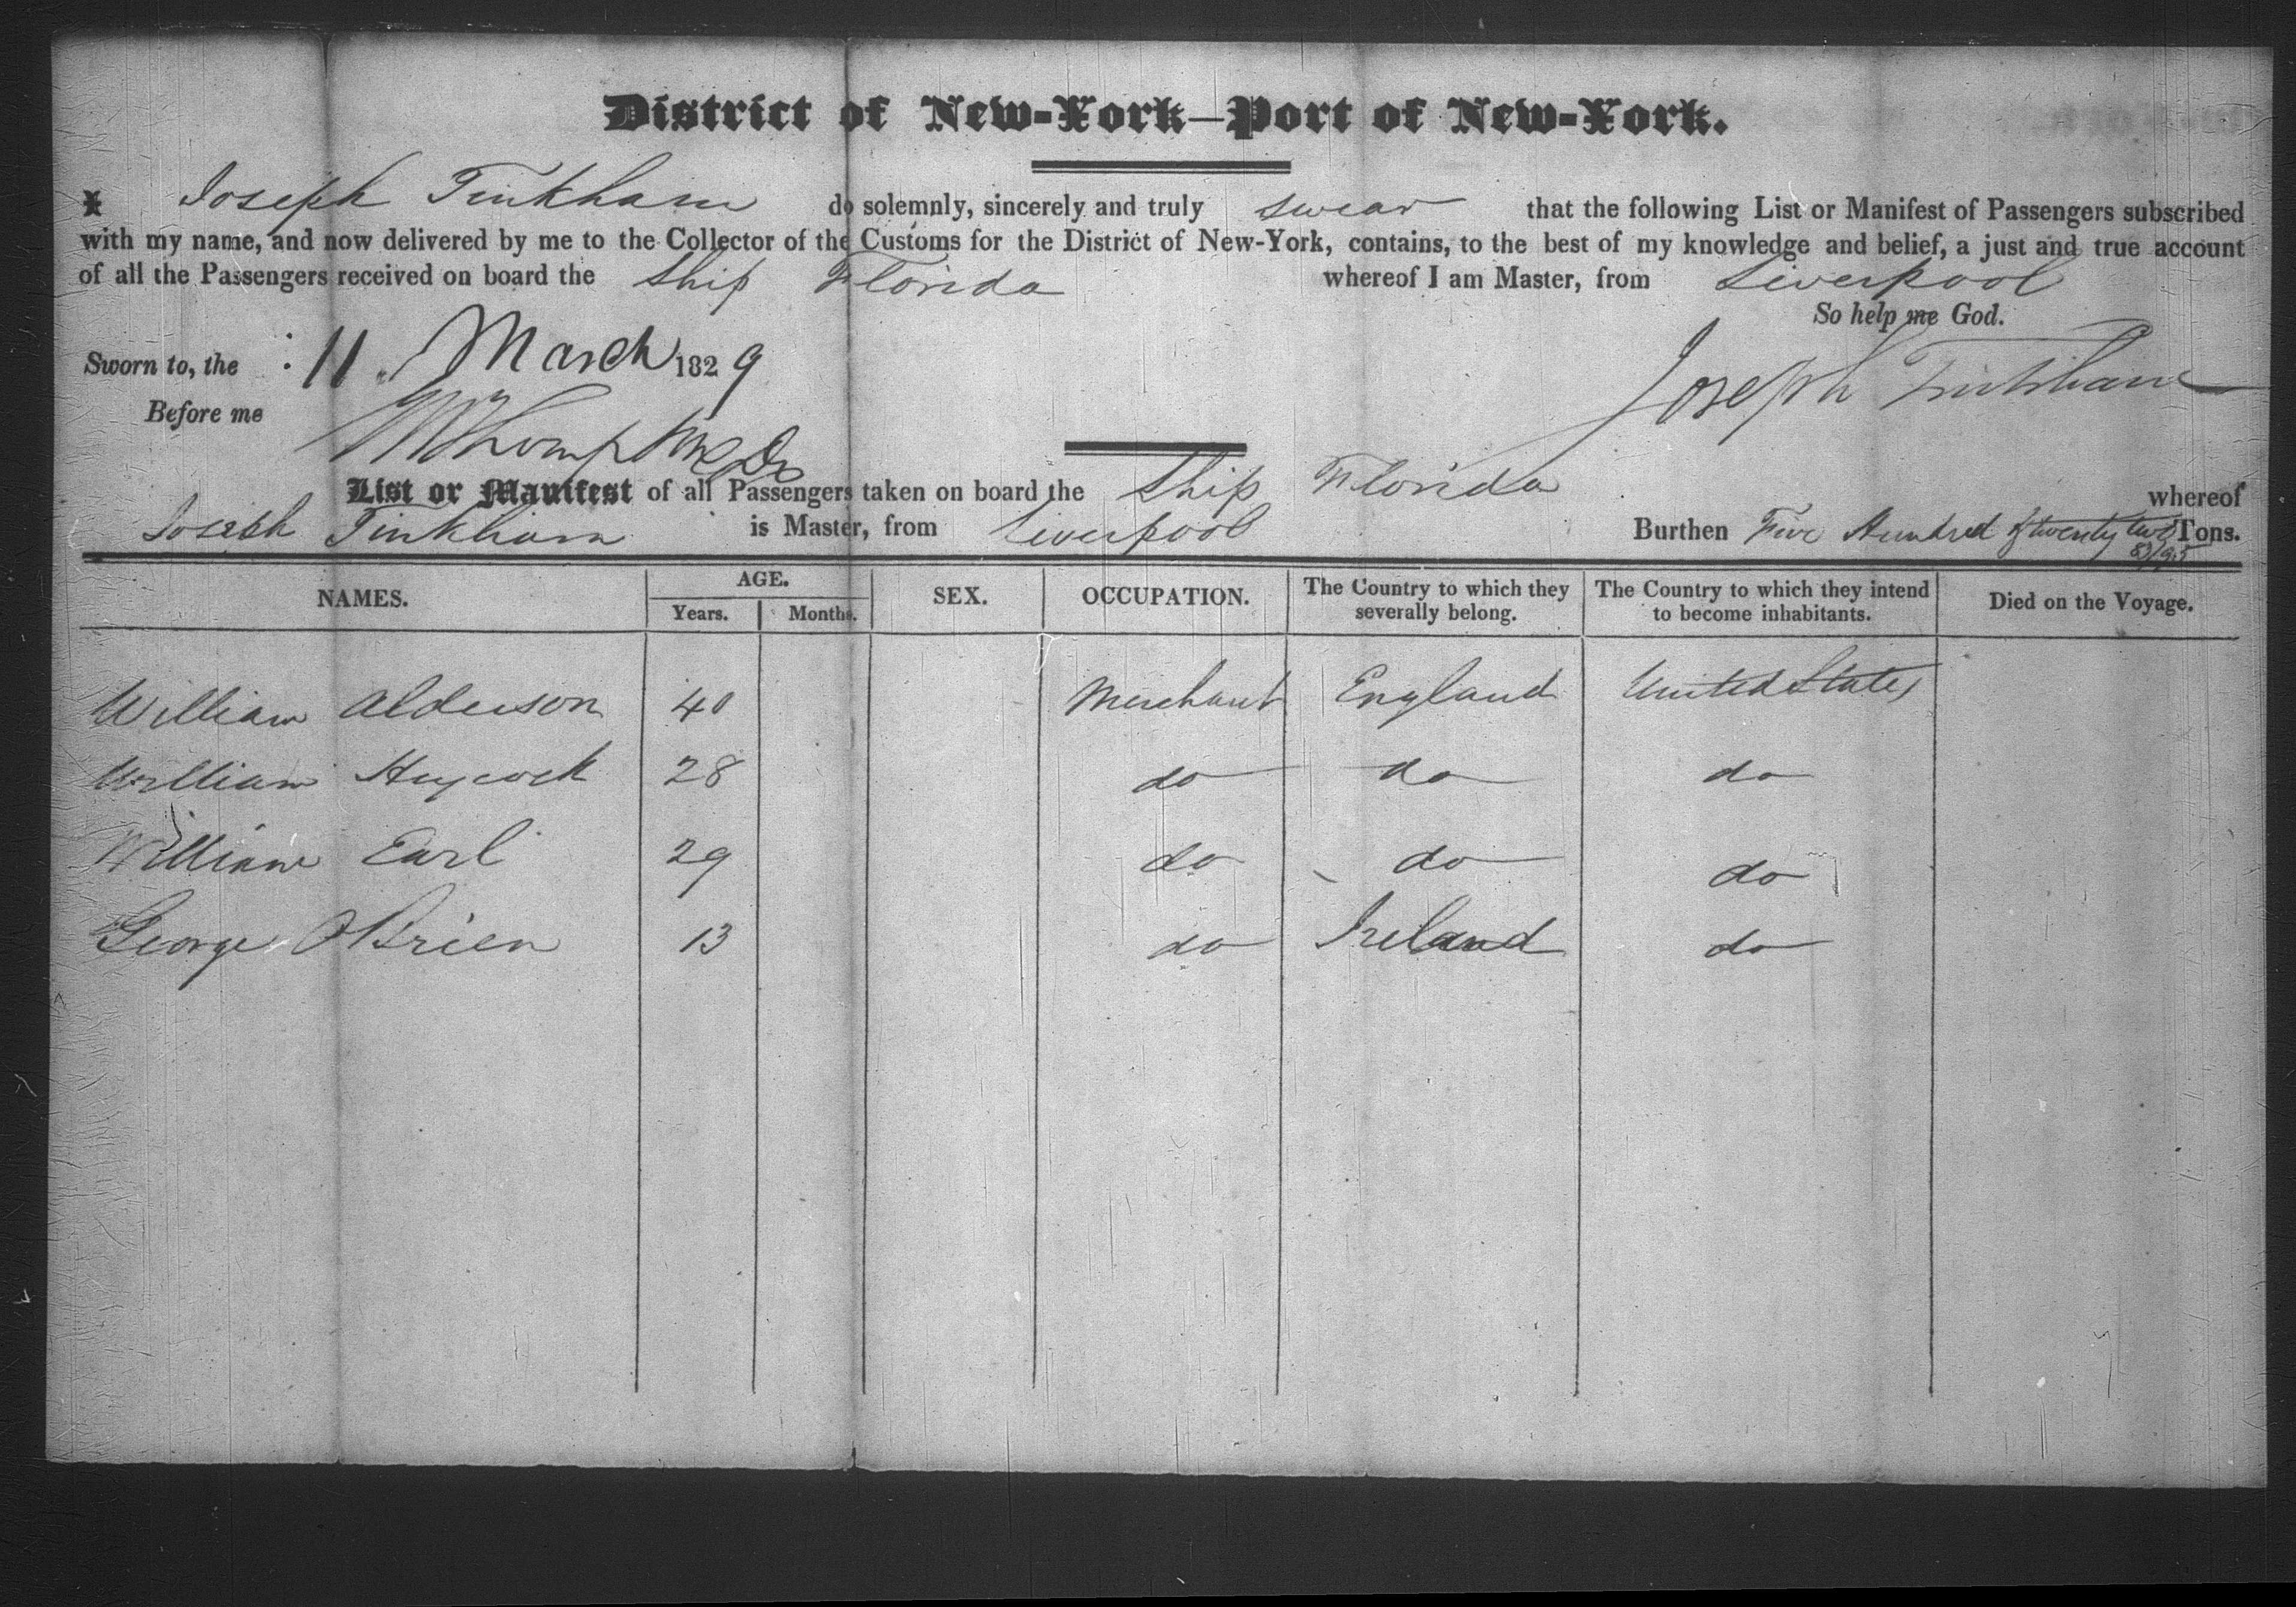 District of New-York—Port of New-York.
I Joseph Tinkham do solemnly, sincerely and truly swear that the following List or Manifest of Passengers subscribed
with my name, and now delivered by me to the Collector of the Customs for the District of New-York, contains, to the best of my knowledge and belief, a just and true account
of all the Passengers received on board the Ship Florida whereof I am Master, from Liverpool
So help me God.
Sworn to, the 11 March 1829
Joseph Tinkham
Before me
List or Manifest of all Passengers taken on board the Ship Florida whereof
Joseph Tinkham is Master, from Liverpool Burthen Five Hundred & twenty two Tons.
NAMES. AGE. Years. Months. SEX. OCCUPATION. The Country to which they severally belong. The Country to which they intend to become inhabitants. Died on the Voyage.
William Alderson 40 Merchant England United States
William Heycock 28 do do do
William Earl 29 do do do
George OBrien 13 do Ireland do